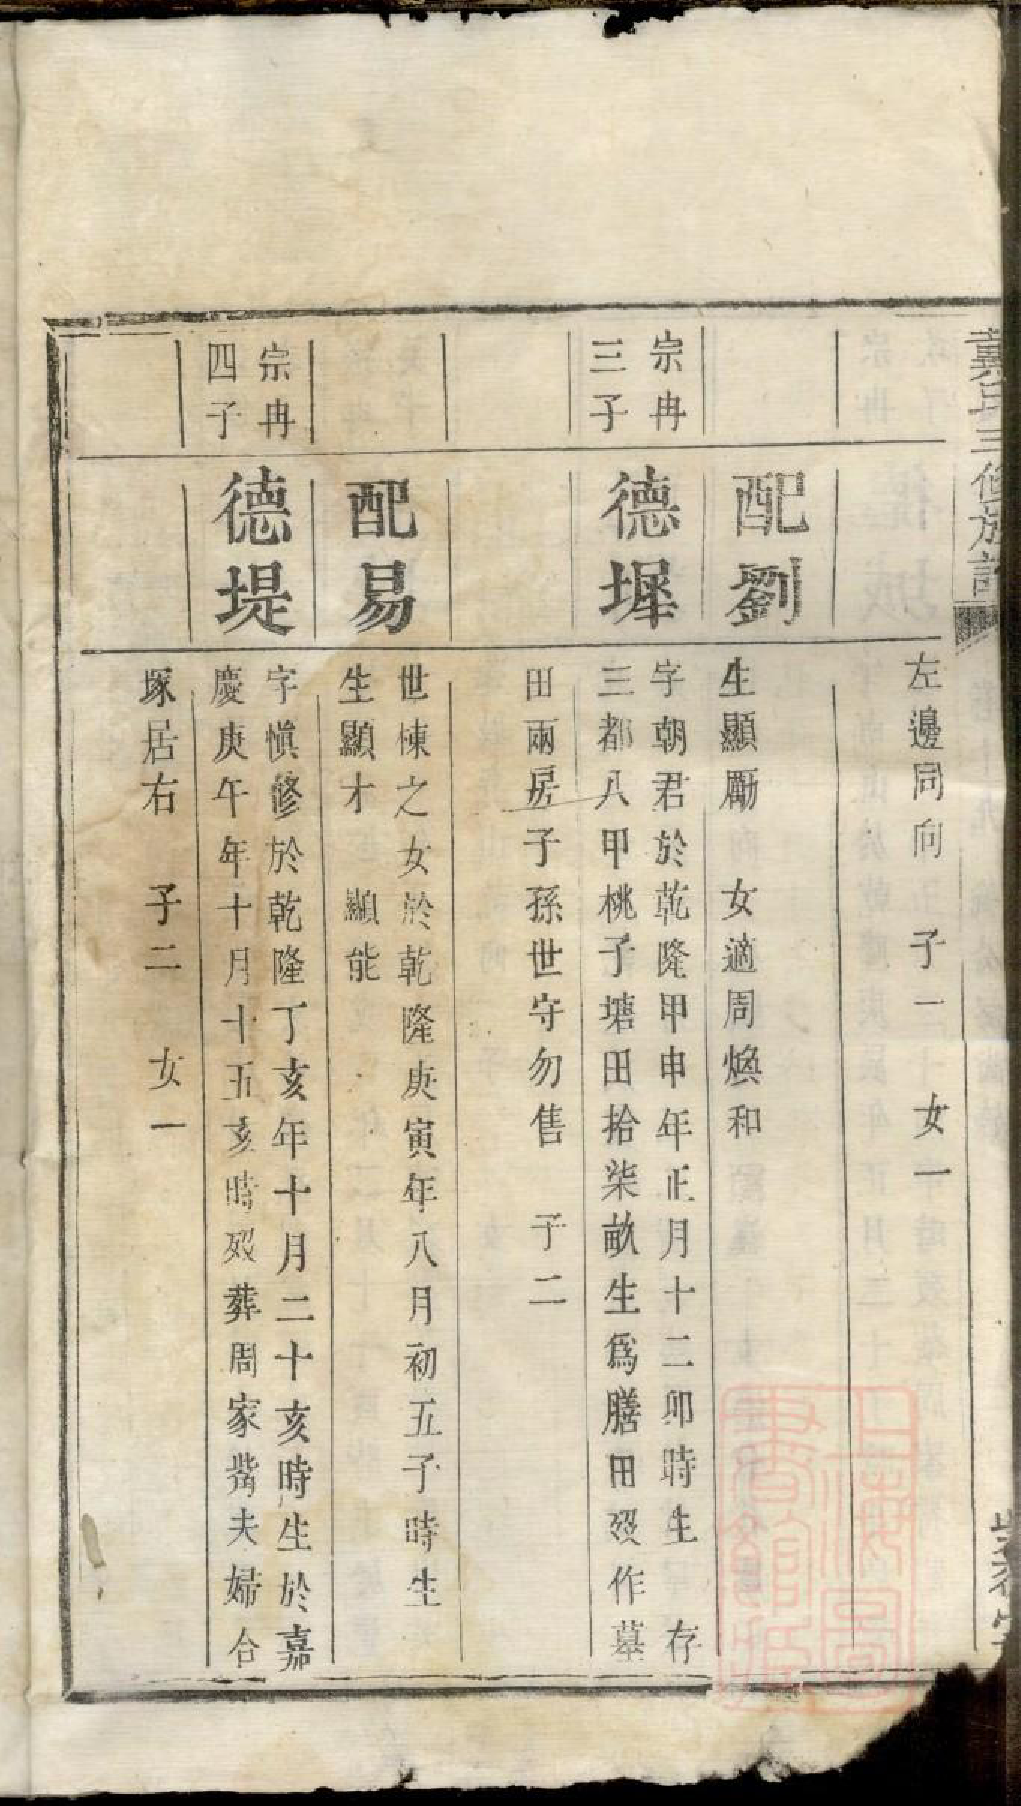 戴氏三修族譜
左邊同向 子一 女一
配劉
生顯勵 女適周煥和
宗冉
三子
德墀
字朝君於乾隆甲申年正月十二卯時生 存
三都八甲桃子塘田拾柒畝生爲膳田歿作墓
田兩房子孫世守勿售 子二
配易
世棟之女於乾隆庚寅年八月初五子時生
生顯才 顯能
宗冉
四子
德堤
字愼修於乾隆丁亥年十月二十亥時生於嘉
慶庚午年十月十五亥時歿葬周家嘴夫婦合
塚居右 子二 女一
上海圖書館藏